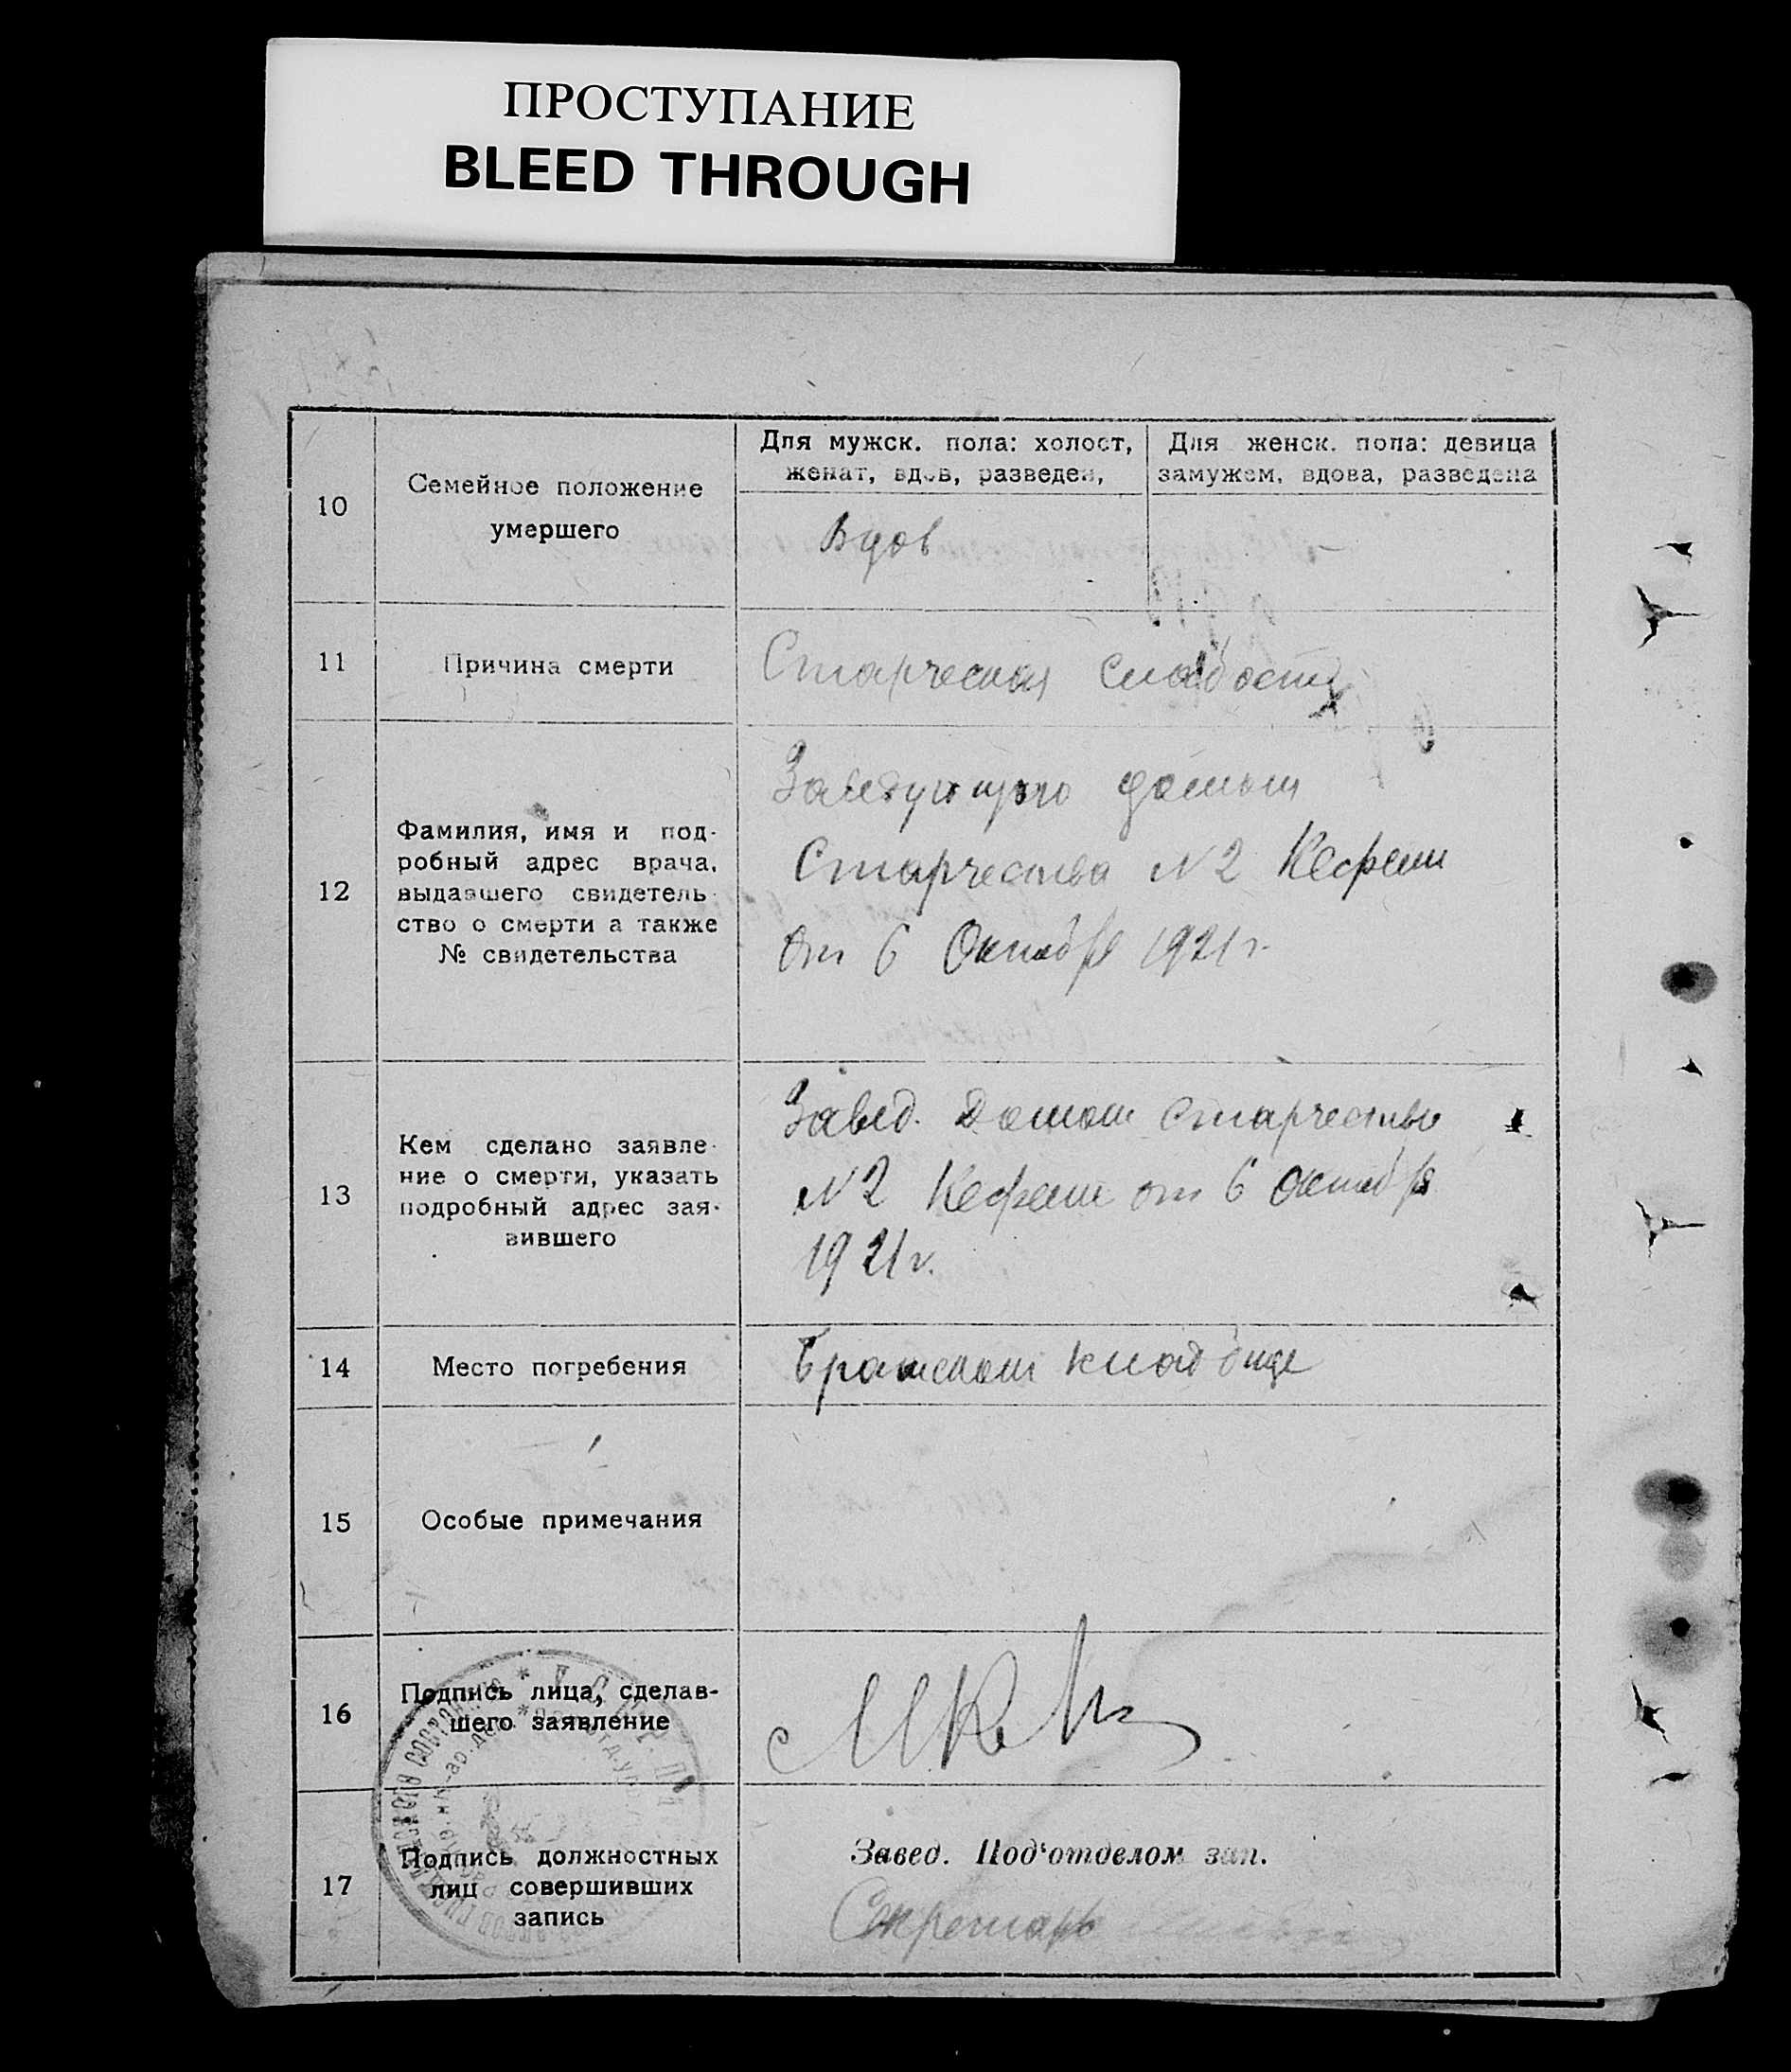 ПРОСТУПАНИЕ
BLEED THROUGH
10
Семейное положение
умершего
Для мужск. пола: холост,
женат, вдов, разведен,
Для женск. пола: девица
замужем, вдова, разведена
Вдов
—
11
Причина смерти
Старческая слабость
12
Фамилия, имя и под-
робный адрес врача,
выдавшего свидетель-
ство о смерти а также
№ свидетельства
домом
Старчества №2
от 6 Октября 1921 г.
13
Кем сделано заявле-
ние о смерти, указать
подробный адрес зая-
вившего
Завед. Домом старчества
№2 от 6 Октября
1921 г.
14
Место погребения
Братском кладбище
15
Особые примечания
16
Подпись лица, сделав-
шего заявление
17
Подпись должностных
лиц совершивших
запись
Завед. Под'отделом зап.
Секретарь